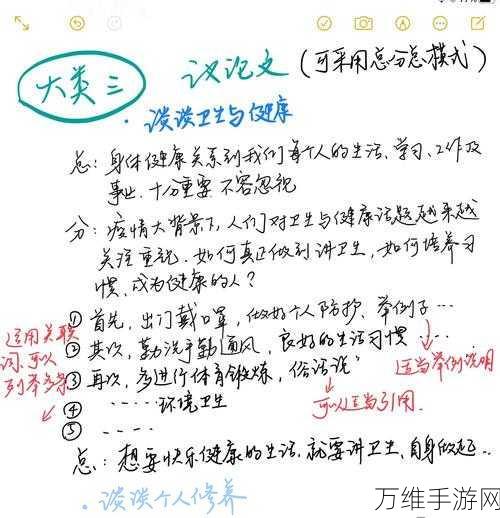 大类三 议论文(可采用总分总模式)
· 谈谈卫生与健康
总:身体健康关系到我们每个人的生活、学习、工作及
事业,十分重要,不容忽视
分:疫情大背景下,人们对卫生与健康话题越来越
关注重视.如何真正做到讲卫生,如何培养习
惯,成为健康的人?
① 首先,出门戴口罩,做好个人防护.举例子…
② 其次,勤洗手勤通风,良好的生活习惯……
③ 再次,多进行体育锻炼,俗话说'
④ ·····环境卫生
⑤ ····
运用关联
词,可以
列举多条
适当举例说明
可以适当引用.
总:想要快乐健康的生活,就要讲卫生,自身做起..
· 谈谈个人修养
万维手游网